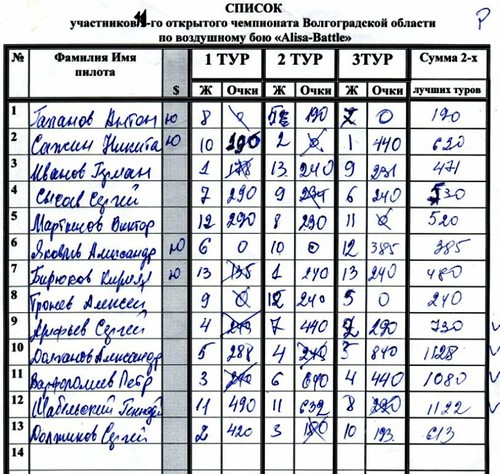 СПИСОК
участников 4-го открытого чемпионата Волгоградской области
по воздушному бою «Alisa-Battle»
№ Фамилия Имя пилота $ 1 ТУР 2 ТУР 3ТУР Сумма 2-х лучших туров
Ж Очки Ж Очки Ж Очки
1 Антон Ю 8 0 12 190 2 0 190
2 Сажин Никита Ю 10 190 2 0 1 440 620
3 Иванов 1 178 13 240 9 231 471
4 Сергей 7 290 9 6 240 530
5 Мартынов Виктор 12 290 8 290 11 0 520
6 Яковлев Александр Ю 6 0 10 0 12 385 385
7 Бирюков Кирилл Ю 13 135 1 240 13 240 480
8 Алексей 9 0 12 240 5 0 240
9 Арефьев Сергей 4 7 440 2 290 730
10 Долганов Александр 5 288 4 240 3 840 1128
11 Варфоломеев Петр 3 6 640 4 440 1080
12 11 490 11 632 8 1122
13 Должиков Сергей 2 420 3 10 193 613
14